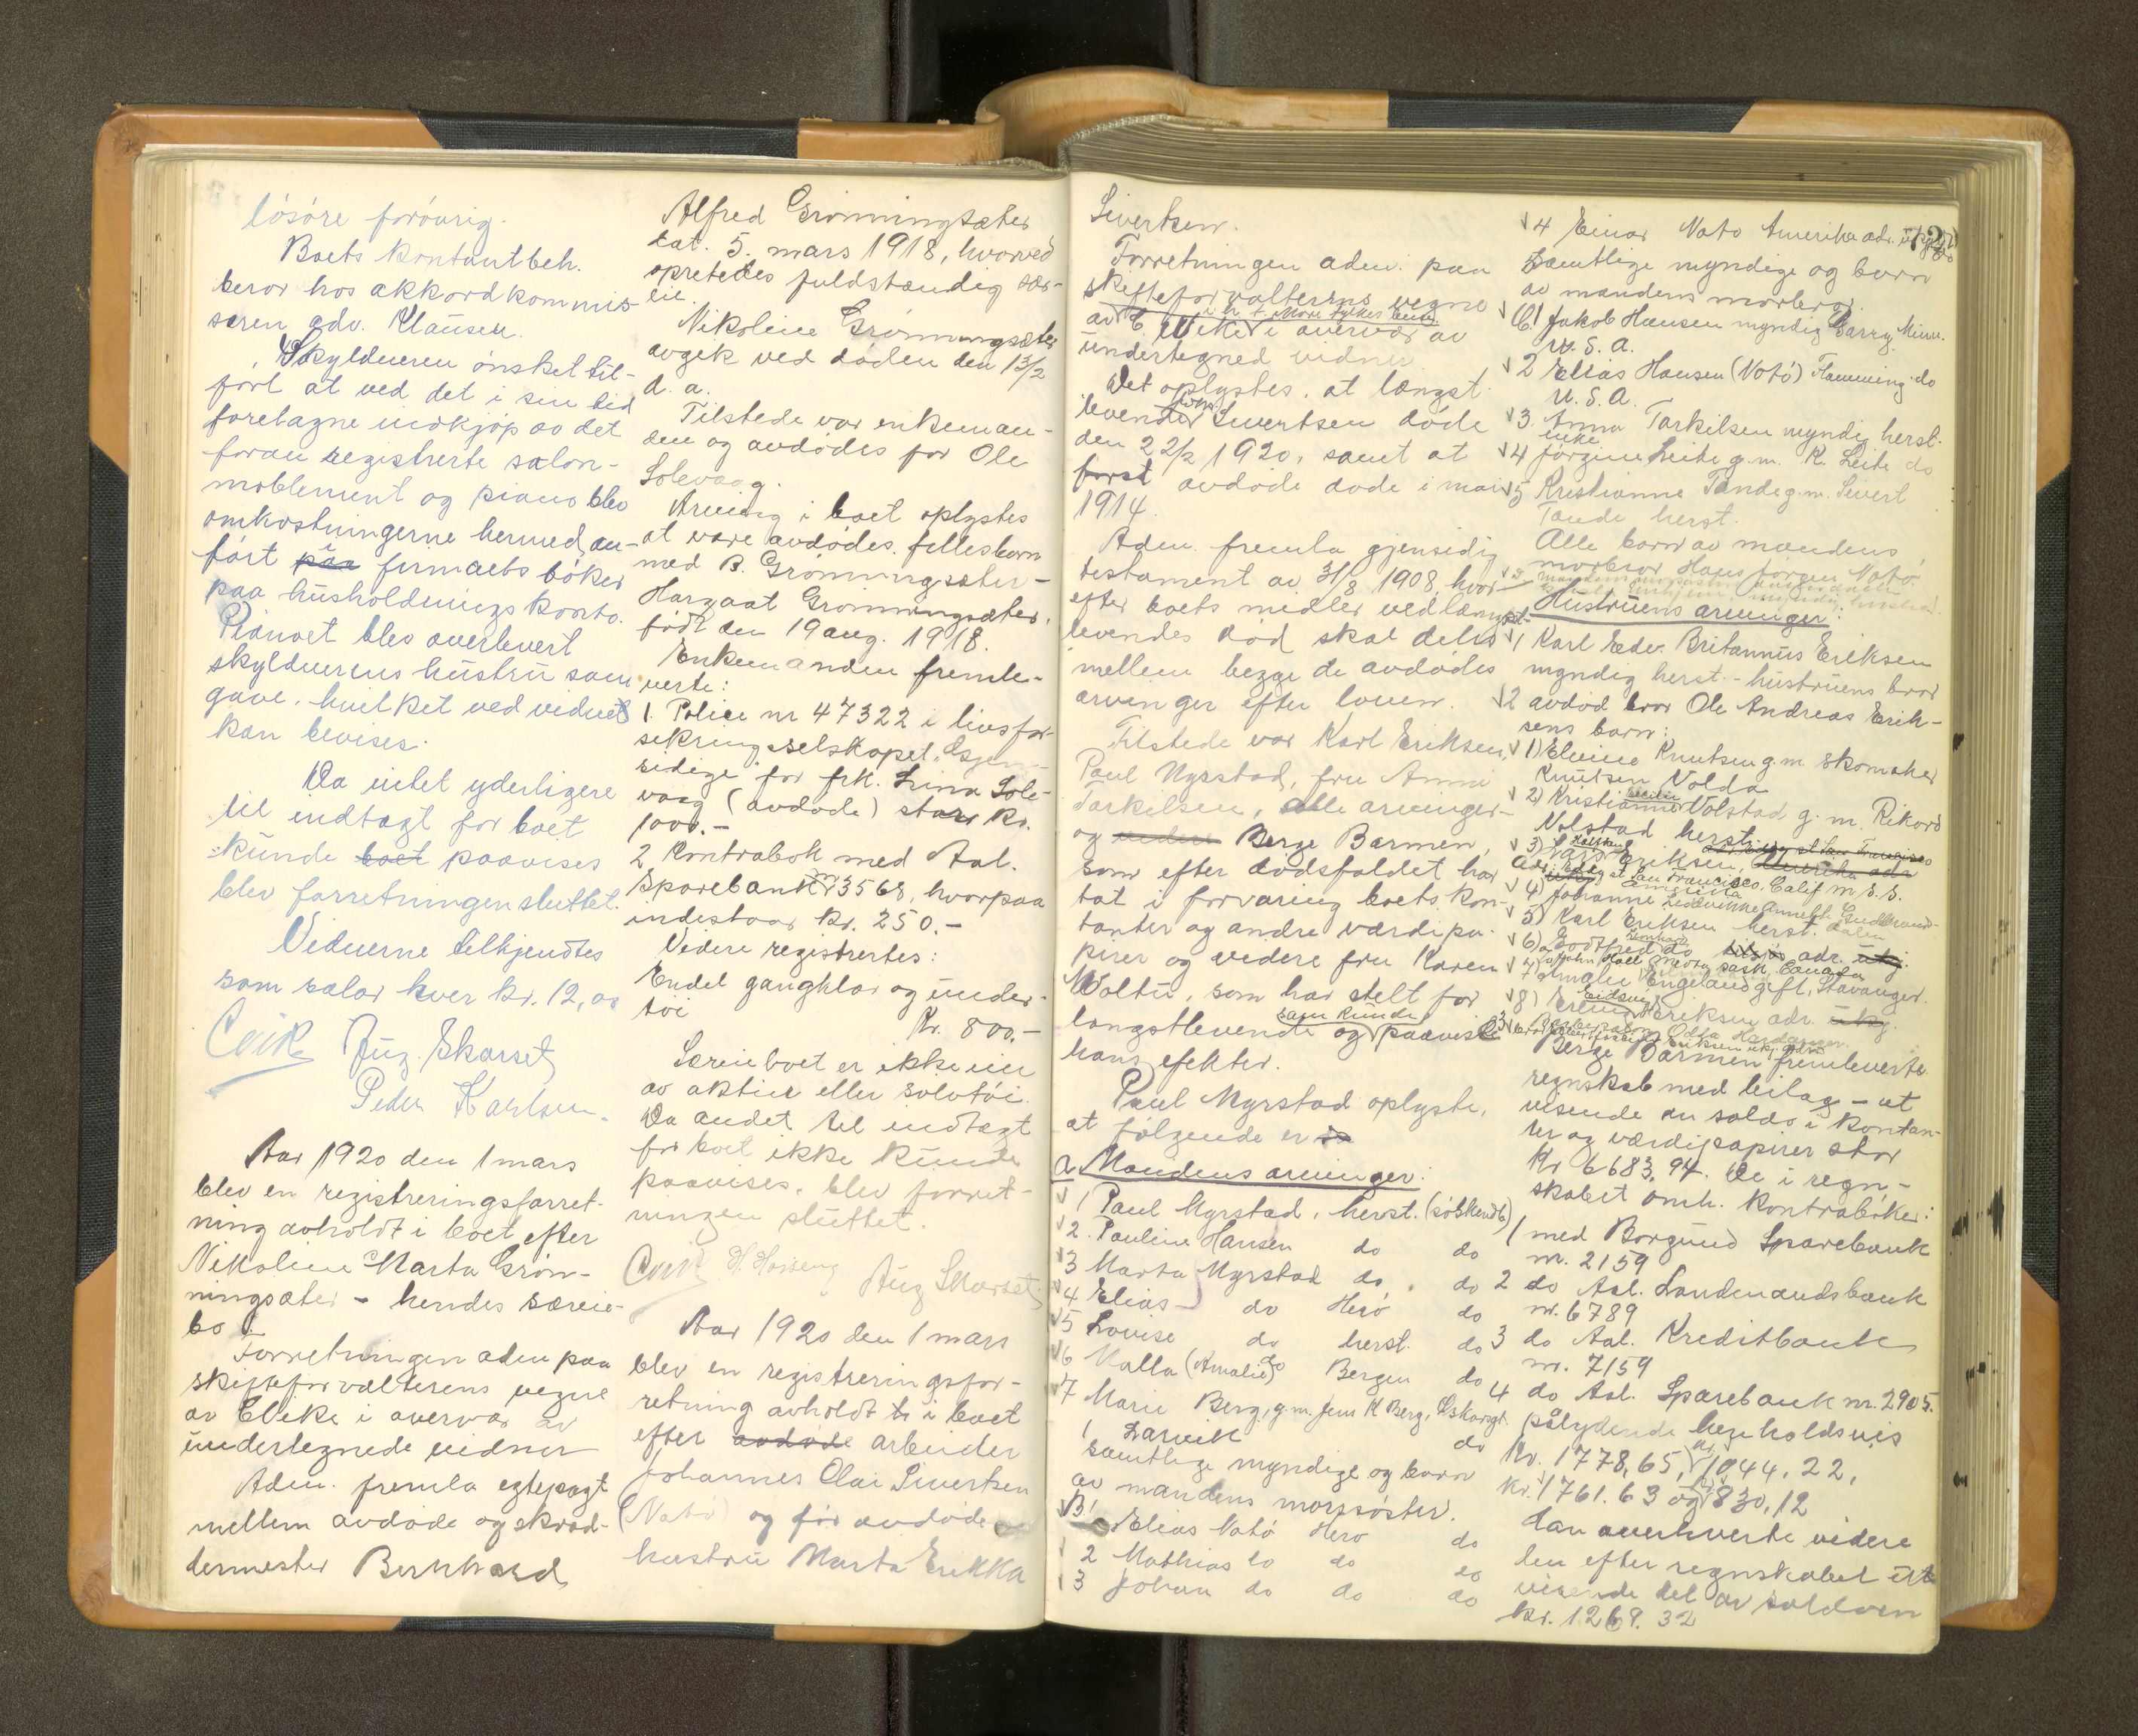 løsøre forøvrig.
Boets kontantbeh.
beror hos akkordkommis-
særen adv. Klausen.
Skylderen ønsket til-
ført at ved det i sin tid
foretagne indkjøp av det
foran registrerte salon-
møblement og piano blev
omkostningerne hermed an-
ført paa firmaets bøker
paa husholdnings konto.
Pianoet blev overlevert
skyldnerens hustru som
gave, hvilket ved vidner
kan bevises.
Da intet yderligere
til indtagt for boet
kunde boet paavises
blev forretningen sluttet.
Vidnerne tilkjendtes
som salær hver kr. 12,00
Aug. Skarset
Peder Karlsen.
Aar 1920 den 1 mars
blev en registreringsforret-
ning avholdt i boet efter
Nikoline Marta Grøn-
ningsæter - hendes særeie-
bo.
Forretningen adm paa
skifteforvalterens vegne
av E Vike i overvær av
undertegnede vidner
Adm. fremla egtepagt
mellem avdøde og skræd-
dermester Bernhard
Alfred Grønningsæter
dat. 5. mars 1918, hvorved
oprettedes fuldstændig sær-
eie.
Nikoline Grønningsæter
avgik ved døden den 13/2
d. a.
Tilstede var enkeman-
den og avdødes far Ole
Solevaag.
Arving i boet oplystes
at være avdødes fellesbarn
med B. Grønningsæter -
Hargaat Grønningsæter,
født den 19 aug. 1918.
Enkemanden fremle-
verte:
1. Police nr 47322 i livsfor-
sikringsselskapet „Gjen-
sidige" for frk. Lina Sole-
vaag (avdøde) stor kr.
1000.-
2 Kontrabok med Aal.
Sparebank nr 3568, hvorpaa
indestaar kr. 250.-
Videre registrertes:
Endel gangklær og under-
tøi
Kr. 800.-
Særeieboet er ikke eier
av aktier eller sølvtøi.
Da andet til indtægt
for boet ikke kunde
paavises, blev forret-
ningen sluttet.
Aug Skarset
Aar 1920 den 1 mars
blev en registreringsfor-
retning avholdt i boet
efter avdøde arbeider
Johannes Olai Sivertsen
(Natø) og før avdøde
hustru Marta Erikka
Sivertsen.
Forretningen adm. paa
skifteforvalterens vegne
av E. Vike i overvær av
undertegned vidner
Det oplystes, at længst
levende Joh. Sivertsen døde
den 22/2 1920, samt at
først avdøde døde i mai
1914.
Adm. fremla gjensidig
testament av 31/8 1908, hvor-
efter boets midler ved længst-
levendes død skal deles
mellem begge de avdødes
arvinger efter loven.
Tilstede var Karl Eriksen,
Paul Myrstad, fru Anna
Torkilsen, alle arvinger -
og Berge Barmen,
som efter dødsfaldet har
tat i forvaring boets kon-
tanter og andre værdipa-
pirer og videre fru Karen
Woltu, som har stelt for
længstlevende og som kunde paavise
hans efekter.
Paul Myrstad oplyste,
at følgende er
A Mandens arvinger:
1 Paul Myrstad, herst. (søskendb)
2. Pauline Hansen do do
3 Marta Myrstad do. do
4 Elias do Herø do
5 Lovise do herst. do
6 Malla (Amalie) do Bergen do
7 Marie Berg, g.m. Jens K Berg,
Larvik do
samtlige myndige og barn
av mandens morsøster.
B 1 Elias Natø Herø do
2 Mathias do do do
3 Johan do do do
4 Einar Natø Amerika adr.
Samtlige myndige og barn
av mandens morbror.
C 1 Jakob Hansen myndig Barry Minn.
U. S. A.
2 Elias Hansen (Natø) Flemming do
U. S. A.
3. Anna Torkilsen myndig herst.
enke
4 Jørgine Leite g.m. K. Leite do
5 Kristianne Tande g.m. Sivert
Tande herst.
Alle barn av mandens
morbror Hans Jørgen Natø.
Hustruens arvinger:
1 Karl Edv. Britannus Eriksen
myndig herst. - hustruens bror
2 avdød bror Ole Andreas Erik-
sens barn:
1) Eline Knutsen g.m skomaker
Knutsen Volda
2) Kristianne Volstad g. m. Rikard
Volstad herst.
3) Lars Eriksen
San Francisco. Calif. U. S. S.
4) Johanne
5) Karl Eriksen herst.
6) Godtfred do adr. ukj.
7) Amalie Engeland gift, Stavanger.
8) Erling Eriksen adr. ukj.
Berge Barmen fremleverte
regnskab med bilag - ut
visende en saldo i kontan-
ter og værdipapirer stor
Kr 6683,94. De i regn-
skabet omh. kontrabøker:
1 med Borgund Sparebank
nr. 2159
2 do Aal. Landmandsbank
nr. 6789
3 do Aal. Kreditbank
nr. 7159
4 do Aal. Sparebank nr. 2905.
pålydende henholdsvis
Kr. 1778,65, kr. 1044,22,
kr. 1761.63 og kr. 830,12
Han overleverte videre
den efter regnskabet ut
visende del av saldoen
kr. 1269.32